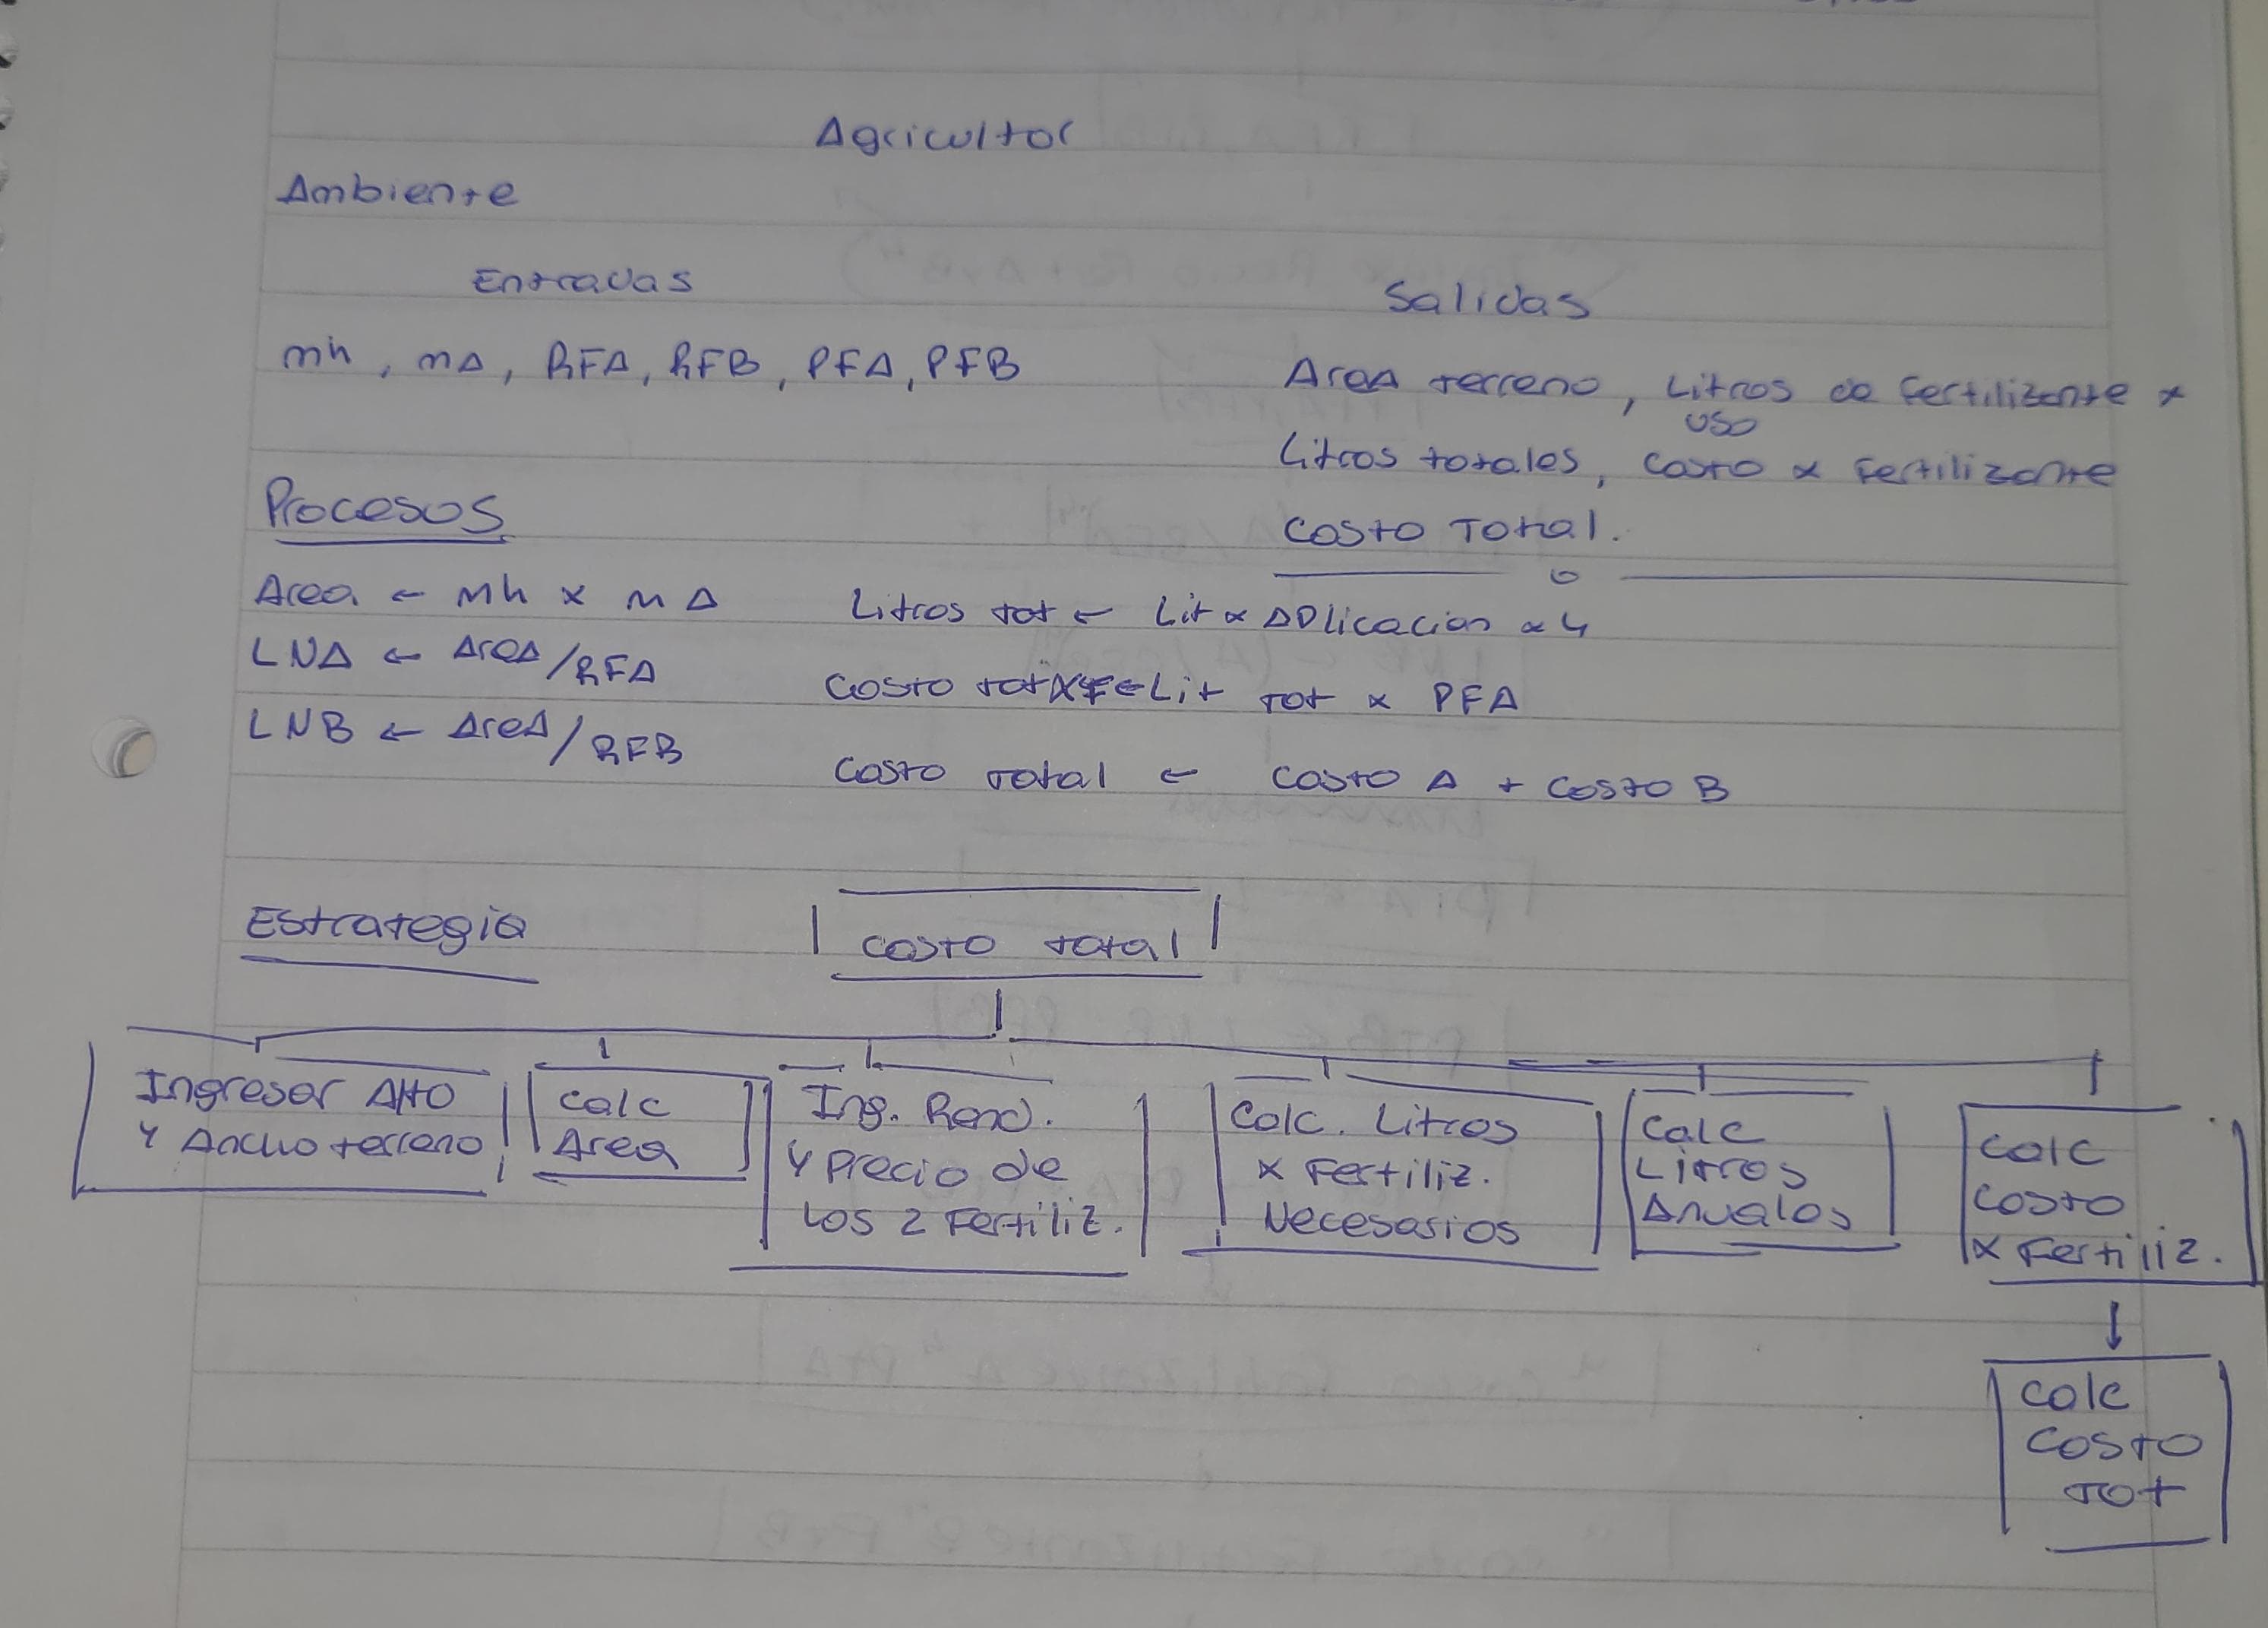 Agricultor
Ambiente
Entradas
Salidas
mh, mA, RFA, RFB, PFA, PFB
Area terreno, Litros de fertilizante x
uso
Litros totales, costo x fertilizante
Costo Total.
Procesos
Area ← mh x mA
LNA ← Area/RFA
LNB ← Area/RFB
Litros tot ← Lit x Aplicacion x 4
Costo tot x F ← Lit tot x PFA
Costo total ← Costo A + Costo B
Estrategia
costo total
Ingresar Alto
y Ancho terreno
Calc
Area
Ing. Rend.
y Precio de
Los 2 Fertiliz.
Calc. Litros
x Fertiliz.
Necesarios
Calc
Litros
Anuales
Calc
costo
x Fertiliz.
Calc
Costo
Tot